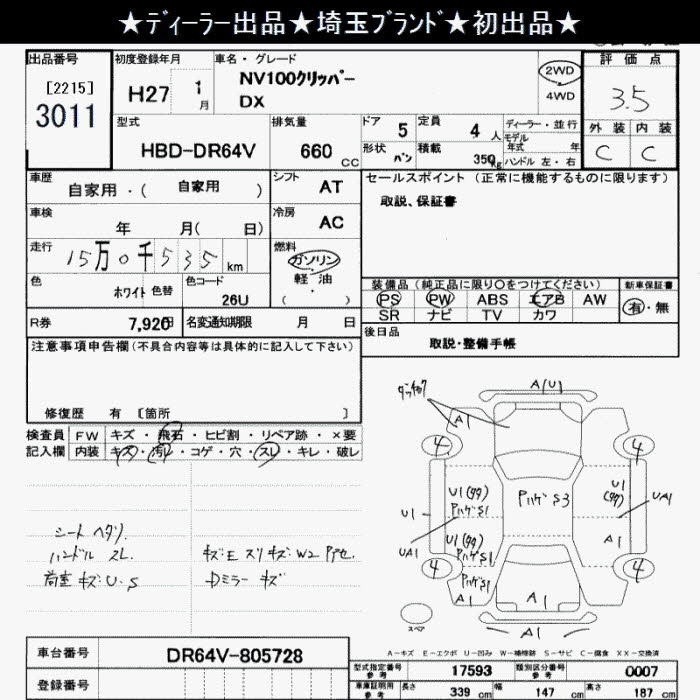 ★ディーラー出品★埼玉ブランド★初出品★
出品番号
[2215]
3011
初度登録年月
H27 1月
車名・グレード
NV100クリッパー
DX
2WD
4WD
評価点
3.5
外装 内装
C C
型式
HBD-DR64V
排気量
660 CC
ドア 5
定員 4人
形状 バン
積載 350kg
ディーラー・並行
モデル
年式 年
ハンドル 左・右
車歴
自家用・( 自家用 )
シフト AT
セールスポイント(正常に機能するものに限ります)
取説、保証書
車検
年 月( 日)
冷房 AC
走行
15万0千535km
燃料
ガソリン
軽油
( ・ )
色
ホワイト 色替
色コード
26U
装備品(純正品に限り○をつけてください)
PS PW ABS エアB AW
SR ナビ TV カワ
新車保証書
有・無
R券 7,920円
名変通知期限 月 日
後日品 取説・整備手帳
注意事項申告欄(不具合内容等は具体的に記入して下さい)
修復歴 有 [箇所 ]
検査員
記入欄
FW キズ・飛石・ヒビ割・リペア跡・×要
内装 キズ・汚レ・コゲ・穴・スレ・キレ・破レ
シートヘタリ
ハンドルスレ
荷室キズ・U・S
Dミラーキズ
A(U)
A1
4
4
U1(タタ)
PハゲS1
PハゲS3
U1
(タタ)
UA1
U1
UA1
U1(タタ)
PハゲS1
A1
4
PハゲS1
4
A1
A1
A1
スペア
A-キズ E-エクボ U-凹み W-補修跡 S-サビ C-腐食 XX-交換済
車台番号 DR64V-805728
登録番号
型式指定番号
参考
17593
類別区分番号
参考
0007
車庫証明用
参考
長さ 339 cm
幅 147 cm
高さ 187 cm